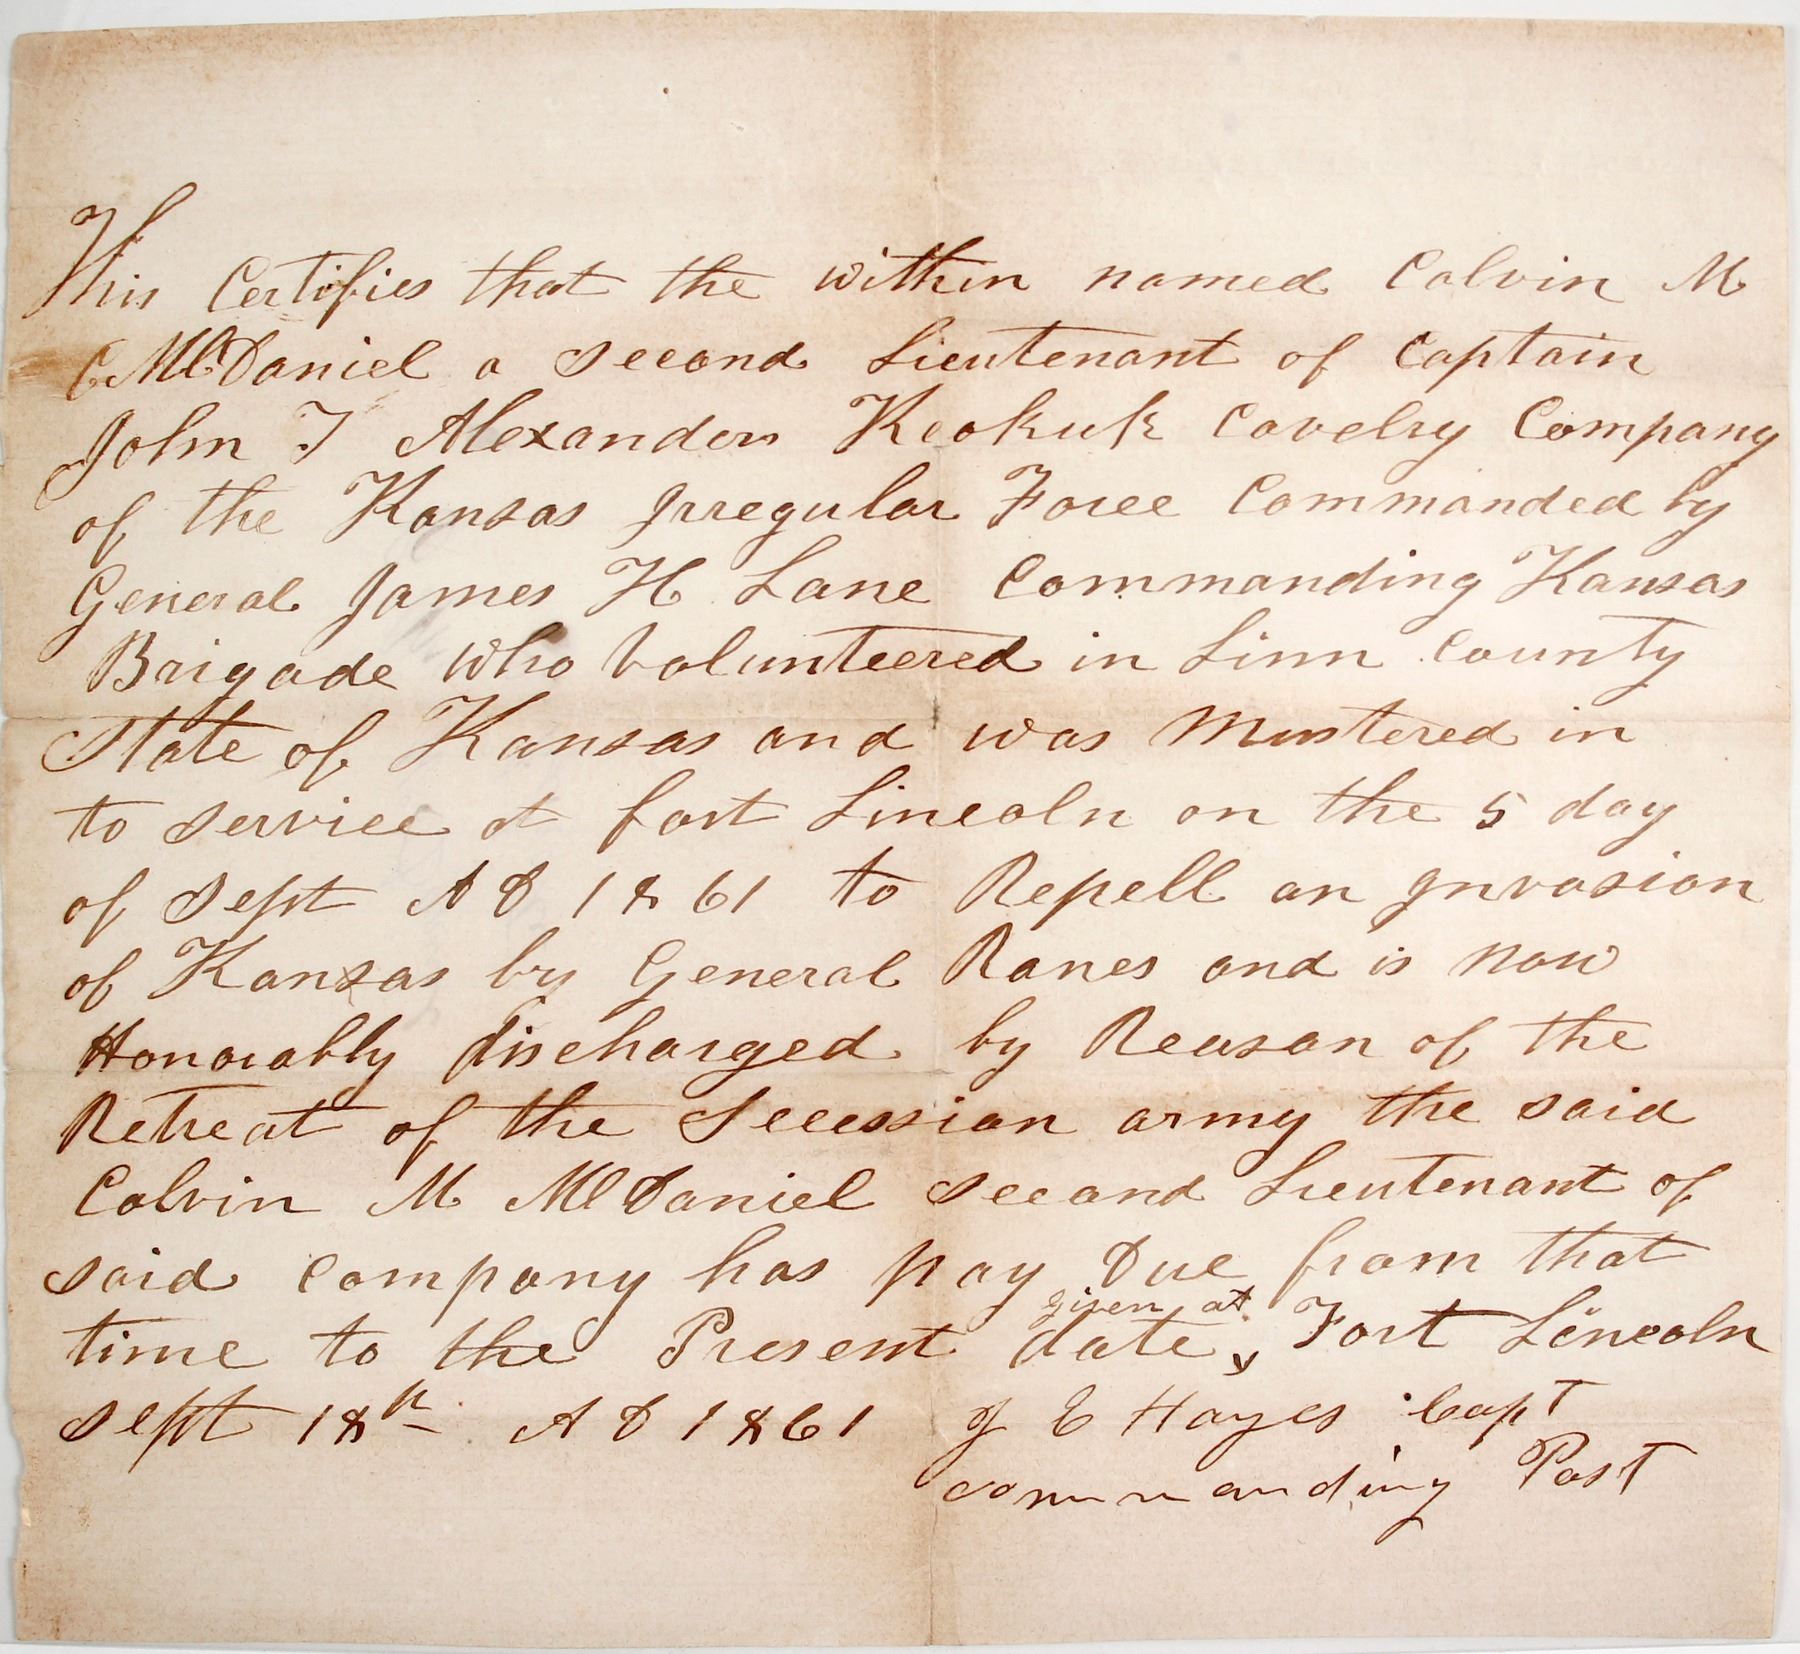 This Certifies that the within named Calvin M
C McDaniel a second Lieutenant of Captain
John T Alexanders Keokuk Cavelry Company
of the Kansas Irregular Force Commanded by
General James H Lane Commanding Kansas
Brigade who Volunteered in Linn County
State of Kansas and was Mustered in
to service at fort Lincoln on the 5 day
of Sept A D 1861 to Repell an Invasion
of Kansas by General Ranes and is now
Honorably discharged by Reason of the
Retreat of the Secession army the said
Calvin M McDaniel second Lieutenant of
said company has pay Due from that
time to the Present date, given at Fort Lincoln
Sept 18th A D 1861 J E Hayes Capt
commanding Post